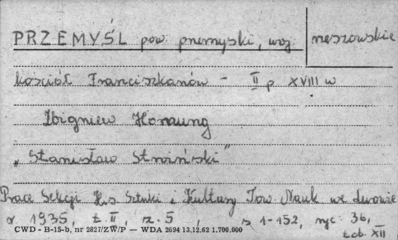 PRZEMYŚL pow. przemyski, woj. rzeszowskie
kościół Franciszkanów - II p XVIII w
Zbigniew Hornung
„Stanisław Stroiński"
Prace Sekcji His. Sztuki i Kultury Tow. Nauk. we Lwowie
r 1935, t. II, z. 5, s 1-152, ryc. 36,
tab. XII
CWD - H-15-b, nr 2827/ZW/P — WDA 2694 13.12.62 1.700.000